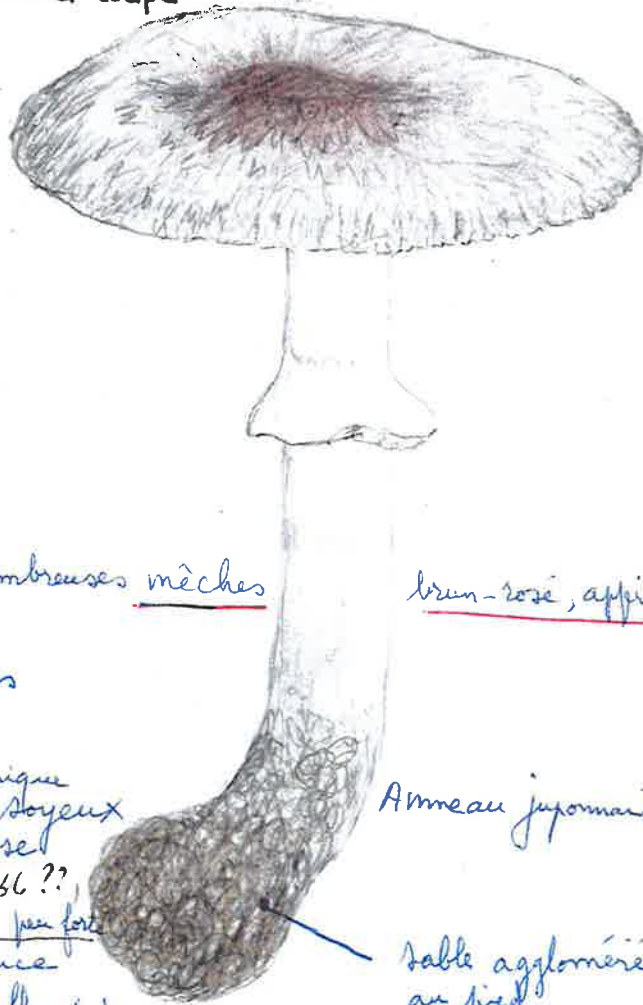 coupe
mbreuses mêches brun-rosé, appr
s
ique
soyeux
se
66 ??,
peu forte
Anneau juponnai
sable aggloméré
au pied